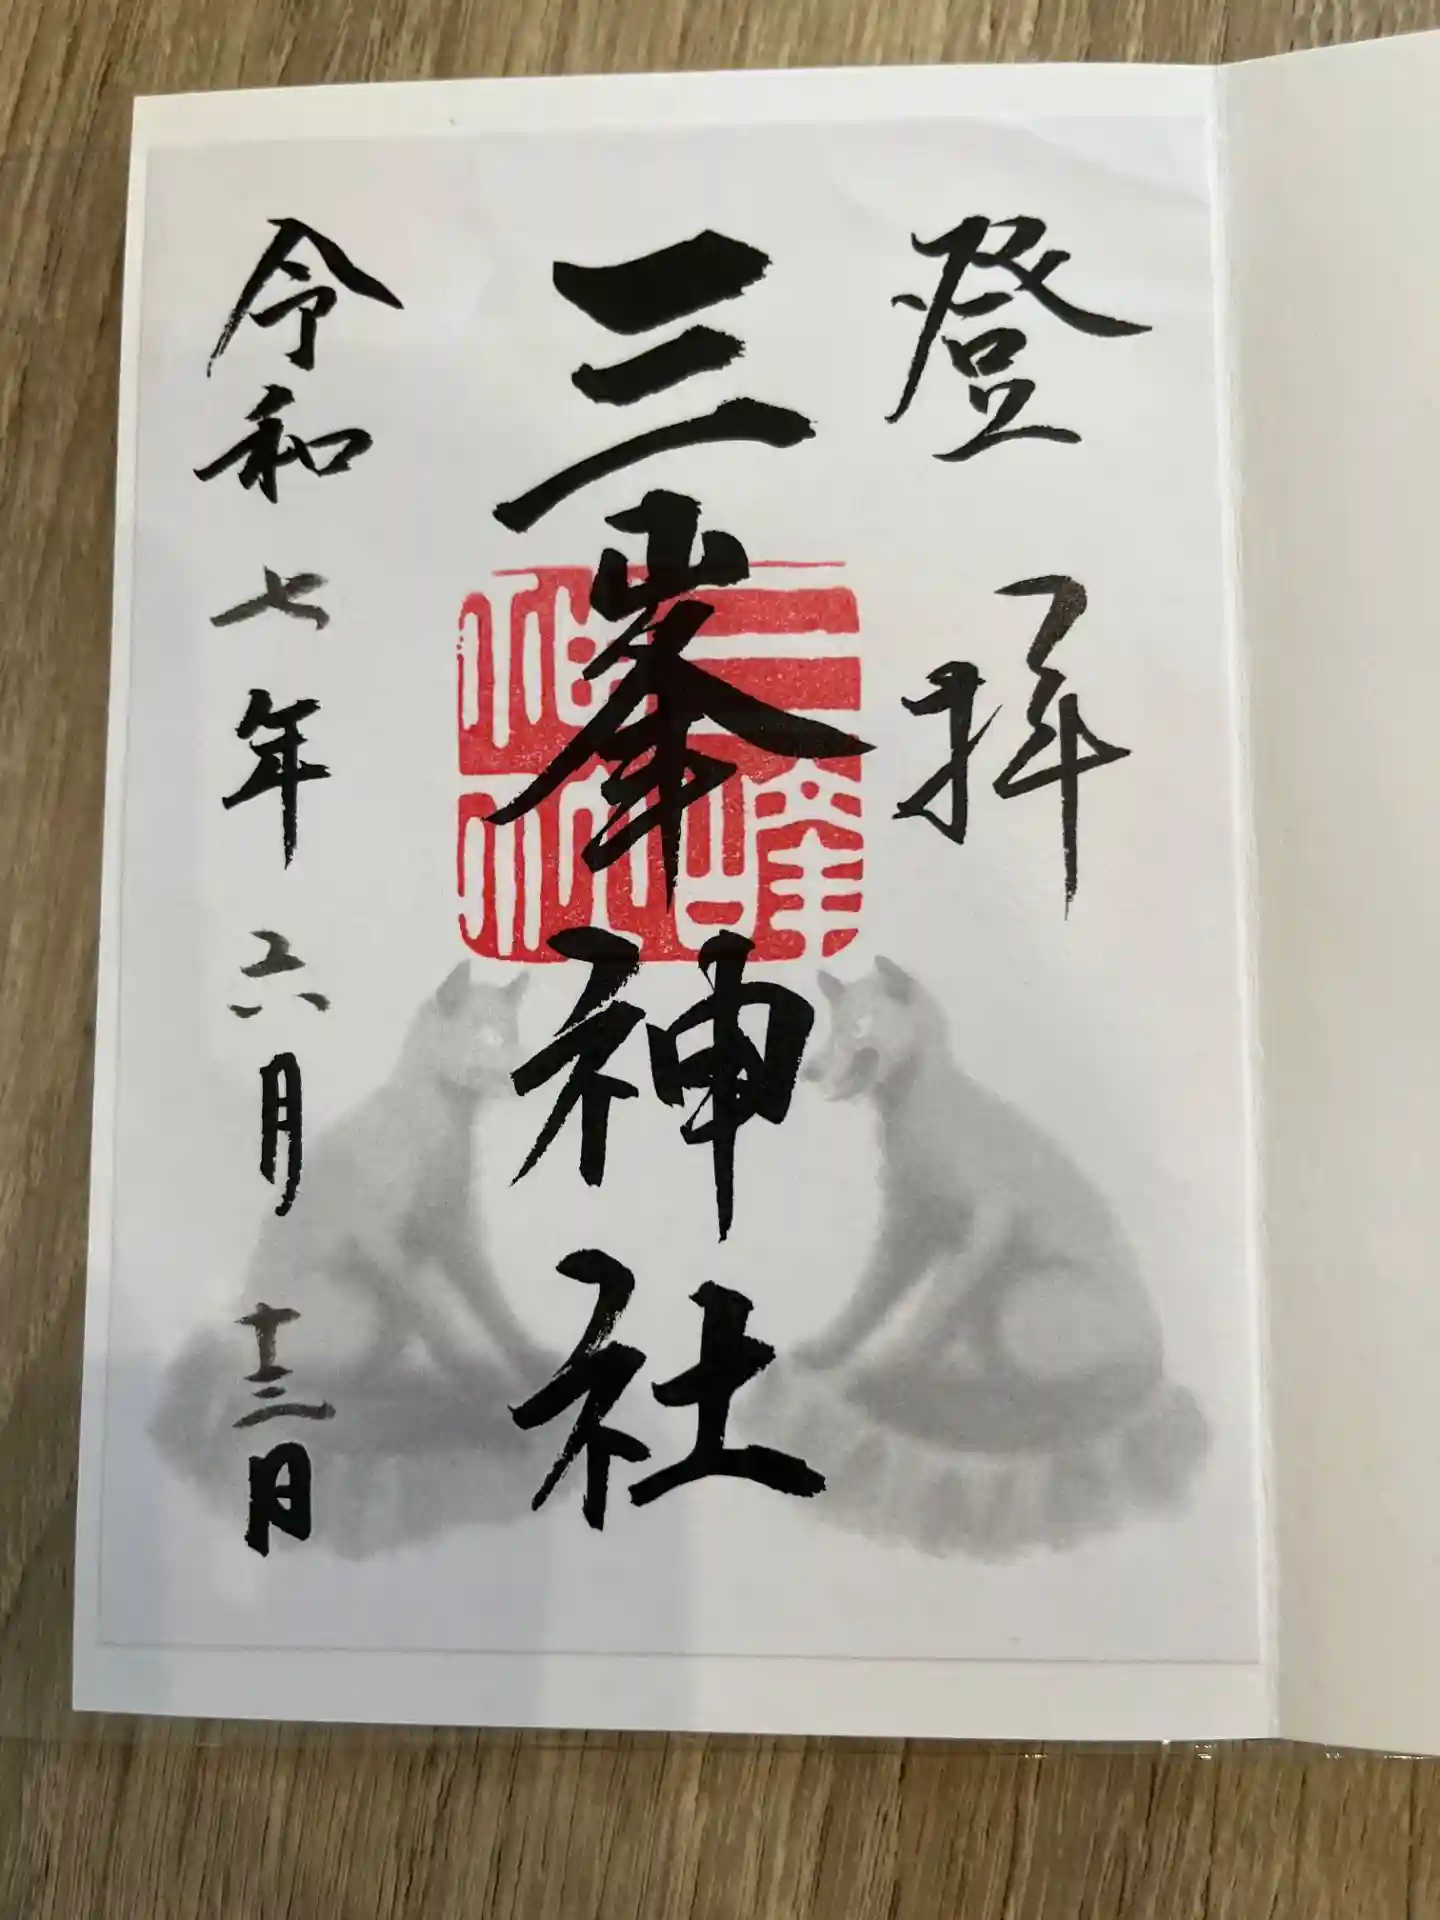 登拝
三峯神社
三峰神社
令和七年六月十三日